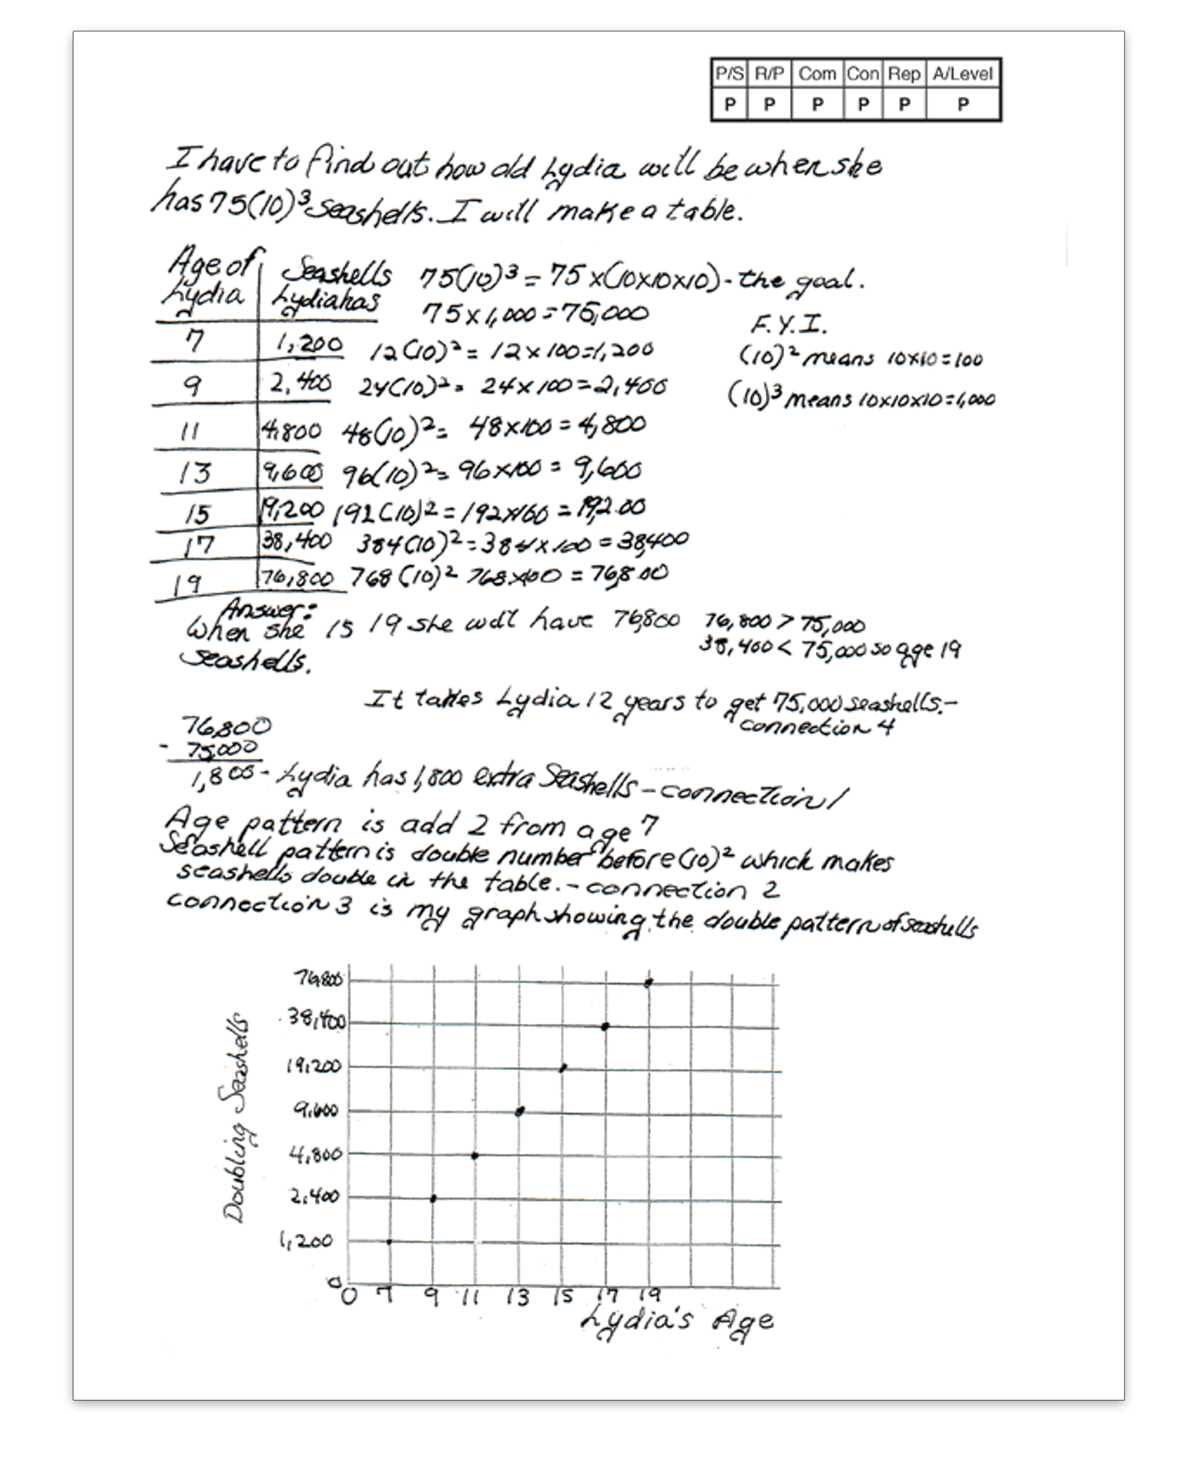 P/S R/P Com Con Rep A/Level
P P P P P P
I have to find out how old Lydia will be when she
has 75(10)³ seashells. I will make a table.
Age of Lydia | Seashells Lydia has
75(10)³ = 75 x (10x10x10) - the goal.
75 x 1,000 = 75,000
F.Y.I.
(10)² means 10x10 = 100
(10)³ means 10x10x10 = 1,000
7 | 1,200 12(10)² = 12 x 100 = 1,200
9 | 2,400 24(10)² = 24 x 100 = 2,400
11 | 4,800 48(10)² = 48x100 = 4,800
13 | 9,600 96(10)² = 96x100 = 9,600
15 | 19,200 192(10)2 = 192x100 = 19,200
17 | 38,400 384(10)² = 384x100 = 38,400
19 | 76,800 768(10)² 768x100 = 76,800
Answer:
When she is 19 she will have 76,800
seashells.
76,800 > 75,000
38,400 < 75,000 so age 19
It takes Lydia 12 years to get 75,000 seashells.-
connection 4
76,800
- 75,000
1,800 - Lydia has 1,800 extra Seashells - connection 1
Age pattern is add 2 from age 7
Seashell pattern is double number before (10)² which makes
seashells double in the table. - connection 2
connection 3 is my graph showing the double pattern of seashells
Doubling Seashells
76,800
38,400
19,200
9,600
4,800
2,400
1,200
0
0 7 9 11 13 15 17 19
Lydia's Age